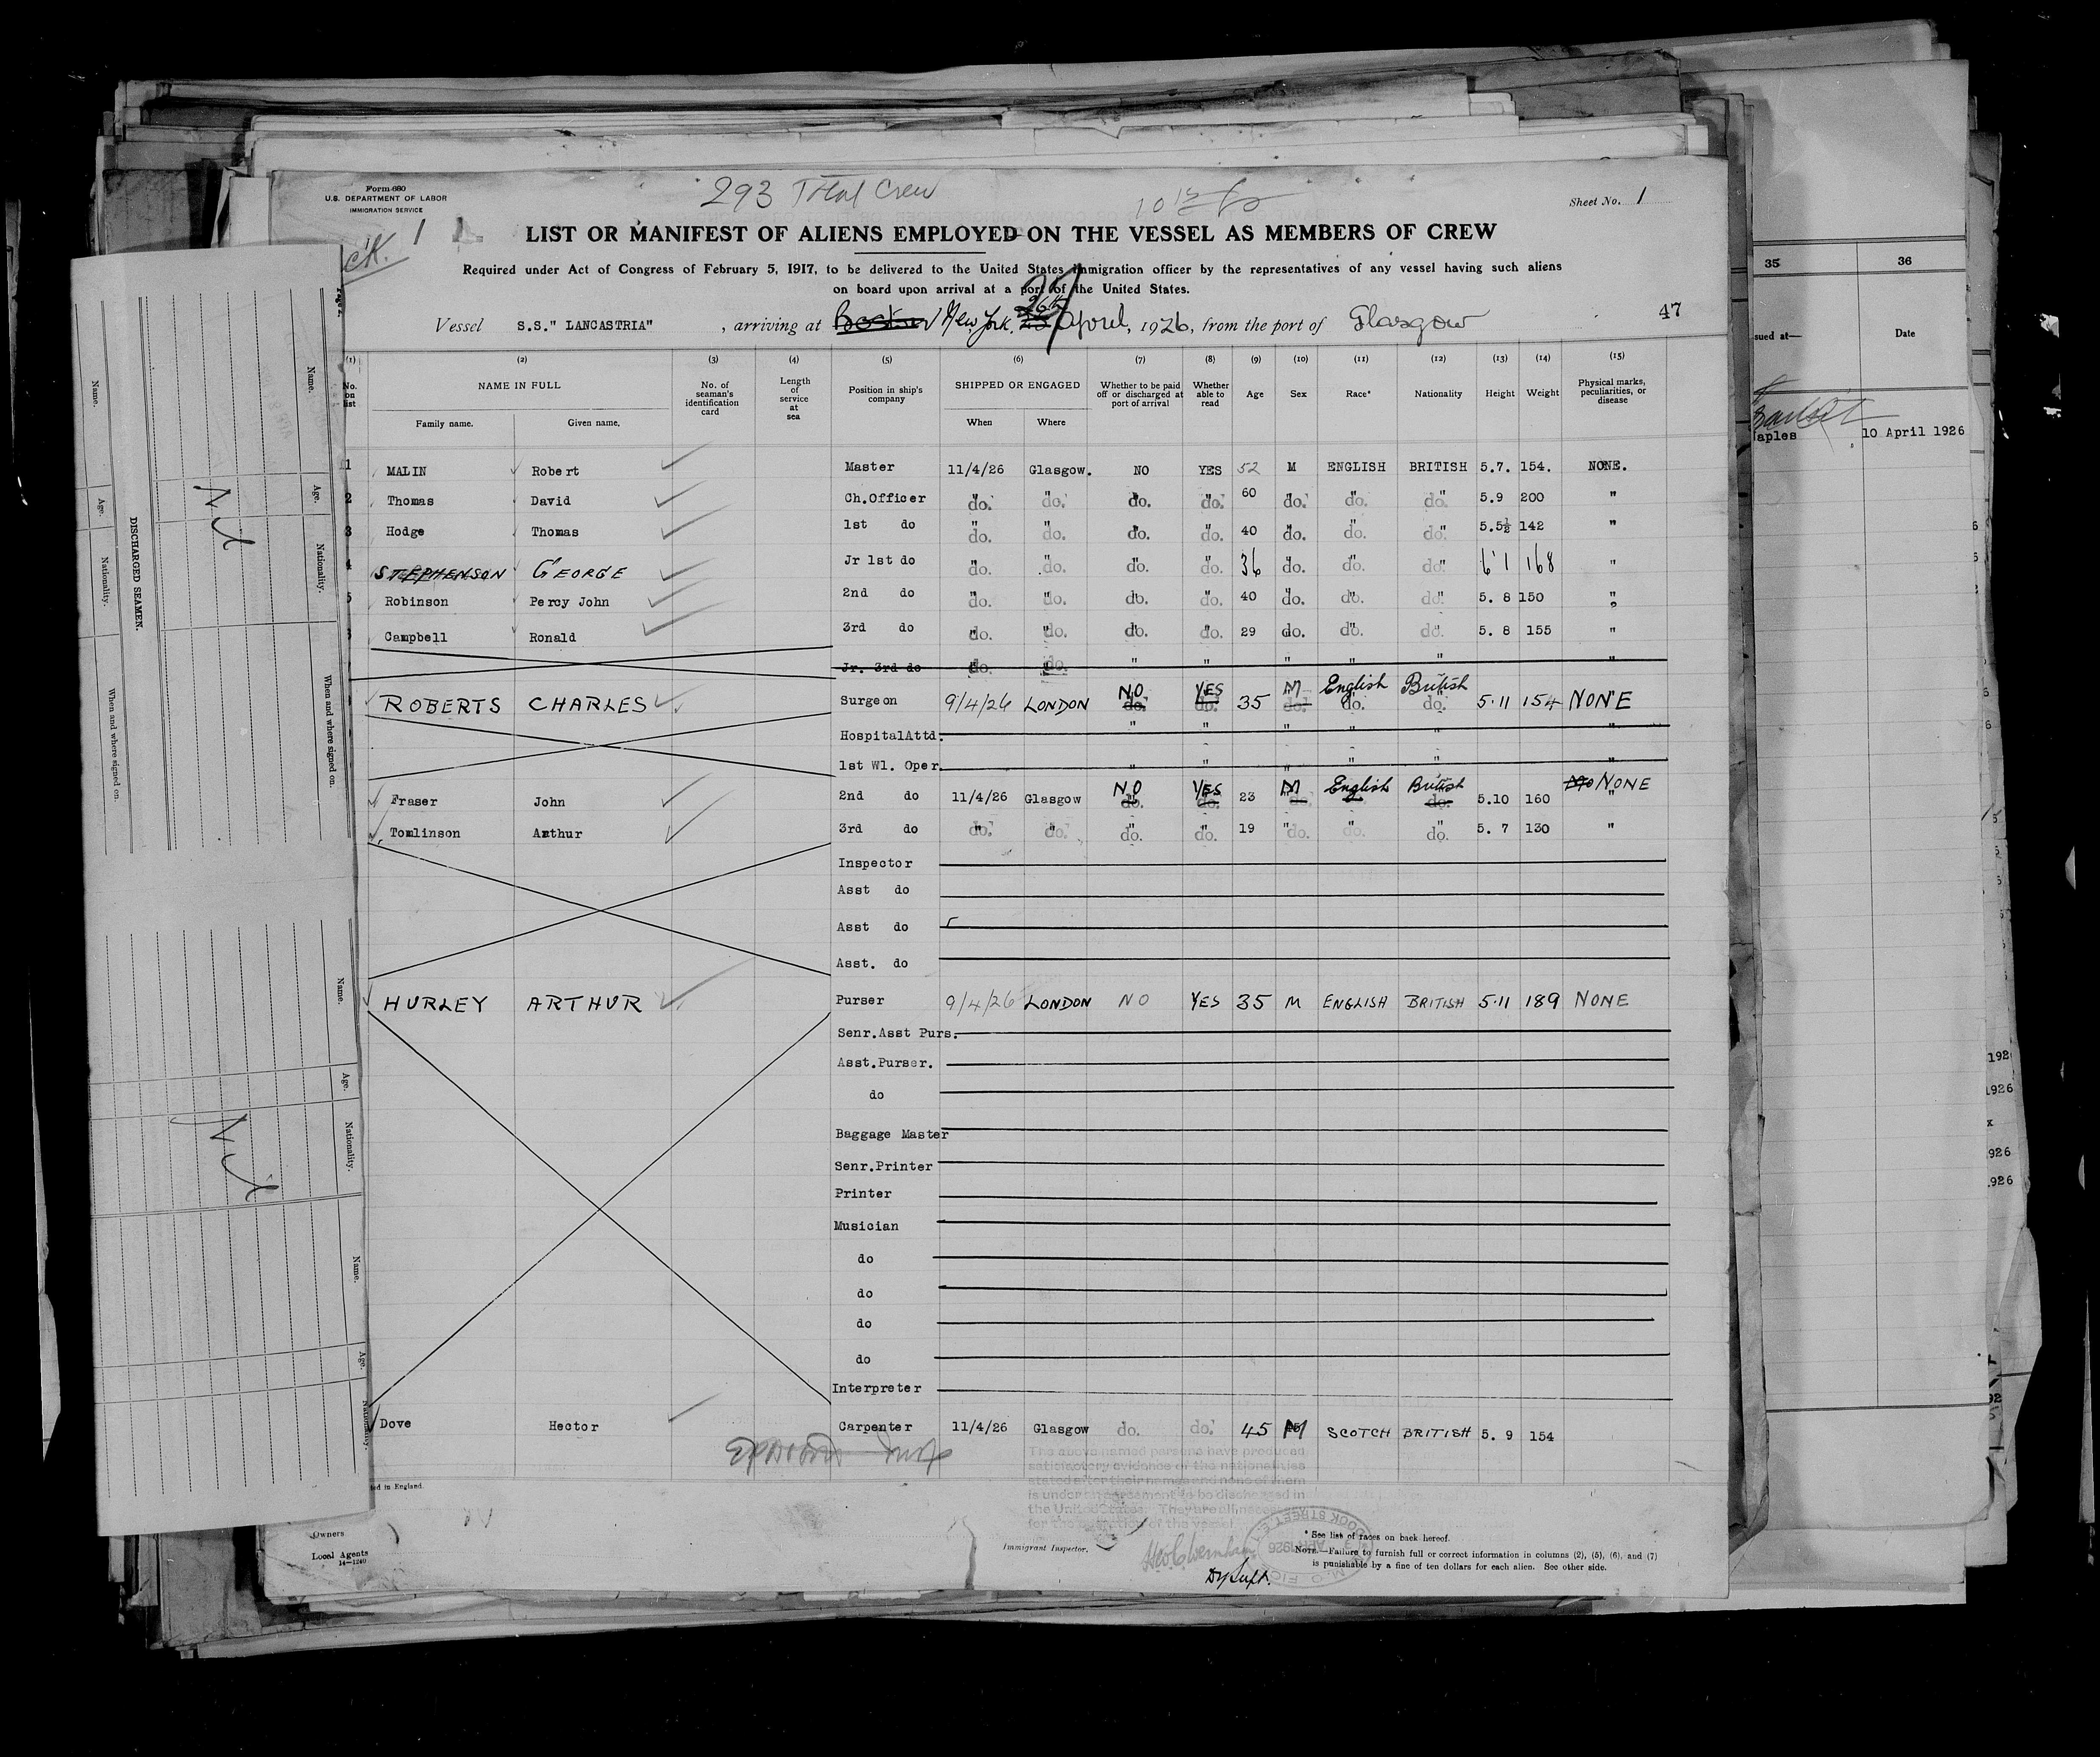 Form 680
U.S. DEPARTMENT OF LABOR
IMMIGRATION SERVICE
293 Total Crew
Sheet No. 1
LIST OR MANIFEST OF ALIENS EMPLOYED ON THE VESSEL AS MEMBERS OF CREW
Required under Act of Congress of February 5, 1917, to be delivered to the United States Immigration officer by the representatives of any vessel having such aliens
on board upon arrival at a port of the United States.
47
Vessel S.S." LANCASTRIA" , arriving at Boston New York, 26th 27 April, 1926, from the port of Glasgow
(1) (2) (3) (4) (5) (6) (7) (8) (9) (10) (11) (12) (13) (14) (15)
No. on list NAME IN FULL No. of seaman's identification card Length of service at sea Position in ship's company SHIPPED OR ENGAGED Whether to be paid off or discharged at port of arrival Whether able to read Age Sex Race* Nationality Height Weight Physical marks, peculiarities, or disease
Family name. Given name. When Where
1 MALIN Robert Master 11/4/26 Glasgow. NO YES 52 M ENGLISH BRITISH 5.7. 154. NONE.
2 Thomas David Ch.Officer do. do. do. do. 60 do. do. do. 5.9 200 "
3 Hodge Thomas 1st do do. do. do. do. 40 do. do. do. 5.5½ 142 "
4 STEPHENSON GEORGE Jr 1st do do. do. do. do. 36 do. do. do. 6'1 168 "
5 Robinson Percy John 2nd do do. do. do. do. 40 do. do. do. 5. 8 150 "
Campbell Ronald 3rd do do. do. do. do. 29 do. do. do. 5. 8 155 "
Jr. 3rd do do. do. " " " " " "
ROBERTS CHARLES Surgeon 9/4/26 LONDON NO YES 35 M English British 5.11 154 NONE
HospitalAttd. " " " " " "
1st Wl. Oper. " " " " "
Fraser John 2nd do 11/4/26 Glasgow NO YES 23 M English British 5.10 160 NONE
Tomlinson Arthur 3rd do do. do. do. do. 19 do. do. do. 5. 7 130 "
Inspector
Asst do
Asst do
Asst. do
HURLEY ARTHUR Purser 9/4/26 LONDON NO YES 35 M ENGLISH BRITISH 5.11 189 NONE
Senr.Asst Purs.
Asst.Purser.
do
Baggage Master
Senr.Printer
Printer
Musician
do
do
do
do
Interpreter
Dove Hector Carpenter 11/4/26 Glasgow do. do. 45 M SCOTCH BRITISH 5. 9 154
The above named persons have produced
satisfactory evidence of the nationalities
stated after their names and none of them
is under an agreement to be discharged in
the United States. They are all necessary
for the operation of the vessel
Owners
Local Agents
14—1240
Immigrant Inspector.
Dy Supt.
* See list of races on back hereof.
NOTE.—Failure to furnish full or correct information in columns (2), (5), (6), and (7)
is punishable by a fine of ten dollars for each alien. See other side.
DISCHARGED SEAMEN.
Name. Age. Nationality. When and where signed on.
Name. Age. Nationality. When and where signed on.
Nil
Name. Age. Nationality.
Name. Age. Nationality.
Nil
35 36
sued at— Date
aples 10 April 1926